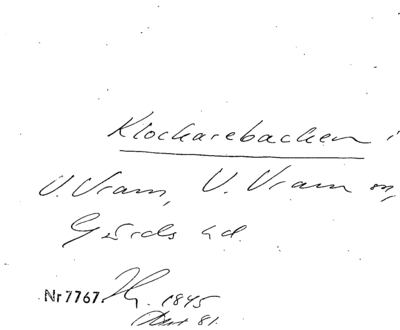 Klockarebacken i
V. Vram, V. Vram sn,
Gärds hd.
Nr 7767. 1845
81.